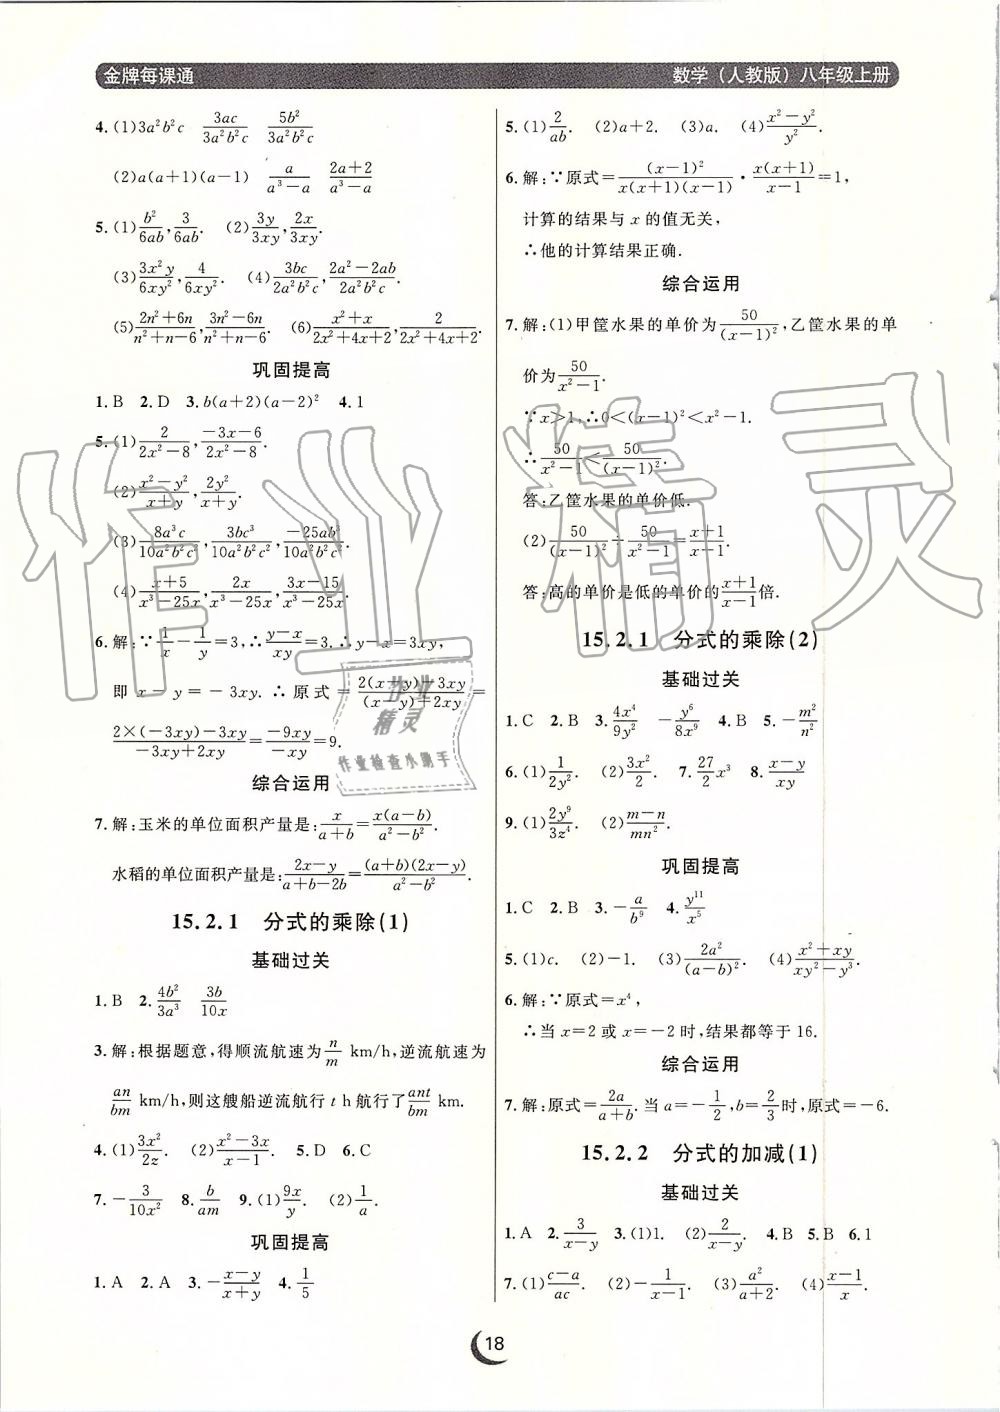 金牌每课通
数学（人教版）八年级上册
4. (1)3a²b²c 3ac/3a²b²c 5b²/3a²b²c
(2)a(a+1)(a-1) a/(a³-a) (2a+2)/(a³-a)
5. (1)b²/6ab, 3/6ab. (2)3y/3xy, 2x/3xy.
(3)3x²y/6xy², 4/6xy². (4)3bc/2a²b²c, (2a²-2ab)/2a²b²c.
(5)(2n²+6n)/(n²+n-6), (3n²-6n)/(n²+n-6). (6)(x²+x)/(2x²+4x+2), 2/(2x²+4x+2).
巩固提高
1. B 2. D 3. b(a+2)(a-2)² 4. 1
5. (1)2/(2x²-8), (-3x-6)/(2x²-8).
(2)(x²-y²)/(x+y), 2y²/(x+y).
(3)8a³c/10a²b²c², 3bc³/10a²b²c², -25ab/10a²b²c².
(4)(x+5)/(x³-25x), 2x/(x³-25x), (3x-15)/(x³-25x).
6. 解:∵1/x-1/y=3,∴(y-x)/xy=3,∴y-x=3xy,
即 x-y=-3xy. ∴原式=(2(x-y)-3xy)/((x-y)+2xy)=
(2×(-3xy)-3xy)/(-3xy+2xy)=-9xy/-xy=9.
综合运用
7. 解:玉米的单位面积产量是:x/(a+b)=x(a-b)/(a²-b²).
水稻的单位面积产量是:(2x-y)/(a+b-2b)=(a+b)(2x-y)/(a²-b²).
15.2.1 分式的乘除(1)
基础过关
1. B 2. 4b²/3a³ 3b/10x
3. 解:根据题意,得顺流航速为n/m km/h,逆流航速为
an/bm km/h,则这艘船逆流航行 t h航行了ant/bm km.
4. (1)3x²/2z. (2)(x²-3x)/(x-1). 5. D 6. C
7. -3/10x² 8. b/am 9. (1)9x/y. (2)1/a.
巩固提高
1. A 2. A 3. -(x-y)/(x+y) 4. 1/5
5. (1)2/ab. (2)a+2. (3)a. (4)(x²-y²)/y².
6. 解:∵原式=(x-1)²/(x(x+1)(x-1))·x(x+1)/(x-1)=1,
计算的结果与 x 的值无关,
∴他的计算结果正确.
综合运用
7. 解:(1)甲筐水果的单价为50/(x-1)²,乙筐水果的单
价为50/(x²-1).
∵x>1,∴0<(x-1)²<x²-1.
∴50/(x²-1)<50/(x-1)².
答:乙筐水果的单价低.
(2)50/(x-1)²÷50/(x²-1)=(x+1)/(x-1).
答:高的单价是低的单价的(x+1)/(x-1)倍.
15.2.1 分式的乘除(2)
基础过关
1. C 2. B 3. 4x⁴/9y² -y⁶/8x⁹ 4. B 5. -m²/n²
6. (1)1/2y². (2)3x²/2. 7. 27/2x³ 8. (x-y)/xy
9. (1)2y⁹/3z⁴. (2)(m-n)/mn².
巩固提高
1. C 2. B 3. -a/b⁹ 4. y¹¹/x⁵
5. (1)c. (2)-1. (3)2a²/(a-b)². (4)(x²+xy)/(xy²-y³).
6. 解:∵原式=x⁴,
∴当 x=2 或 x=-2 时,结果都等于 16.
综合运用
7. 解:原式=2a/(a+b). 当 a=-1/2,b=2/3时,原式=-6.
15.2.2 分式的加减(1)
基础过关
1. A 2. 3/(x-y) 3. (1)1. (2)2/(x-y). 4. B 5. B 6. 1
7. (1)(c-a)/ac. (2)-1/(x-1). (3)a²/(a+2). (4)(x-1)/x.
18
作业精灵
作业
精灵
作业检查小助手